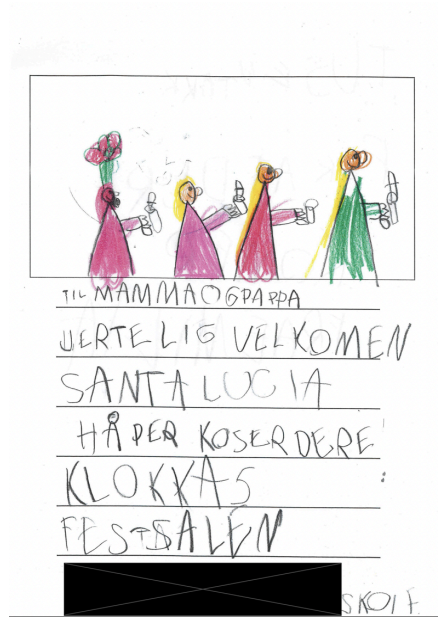 TIL MAMMA OG PAPPA
JERTELIG VELKOMEN
SANTA LUCIA
HÅPER KOSER DERE
KLOKKA 5
FESTSALEN
SKOLE